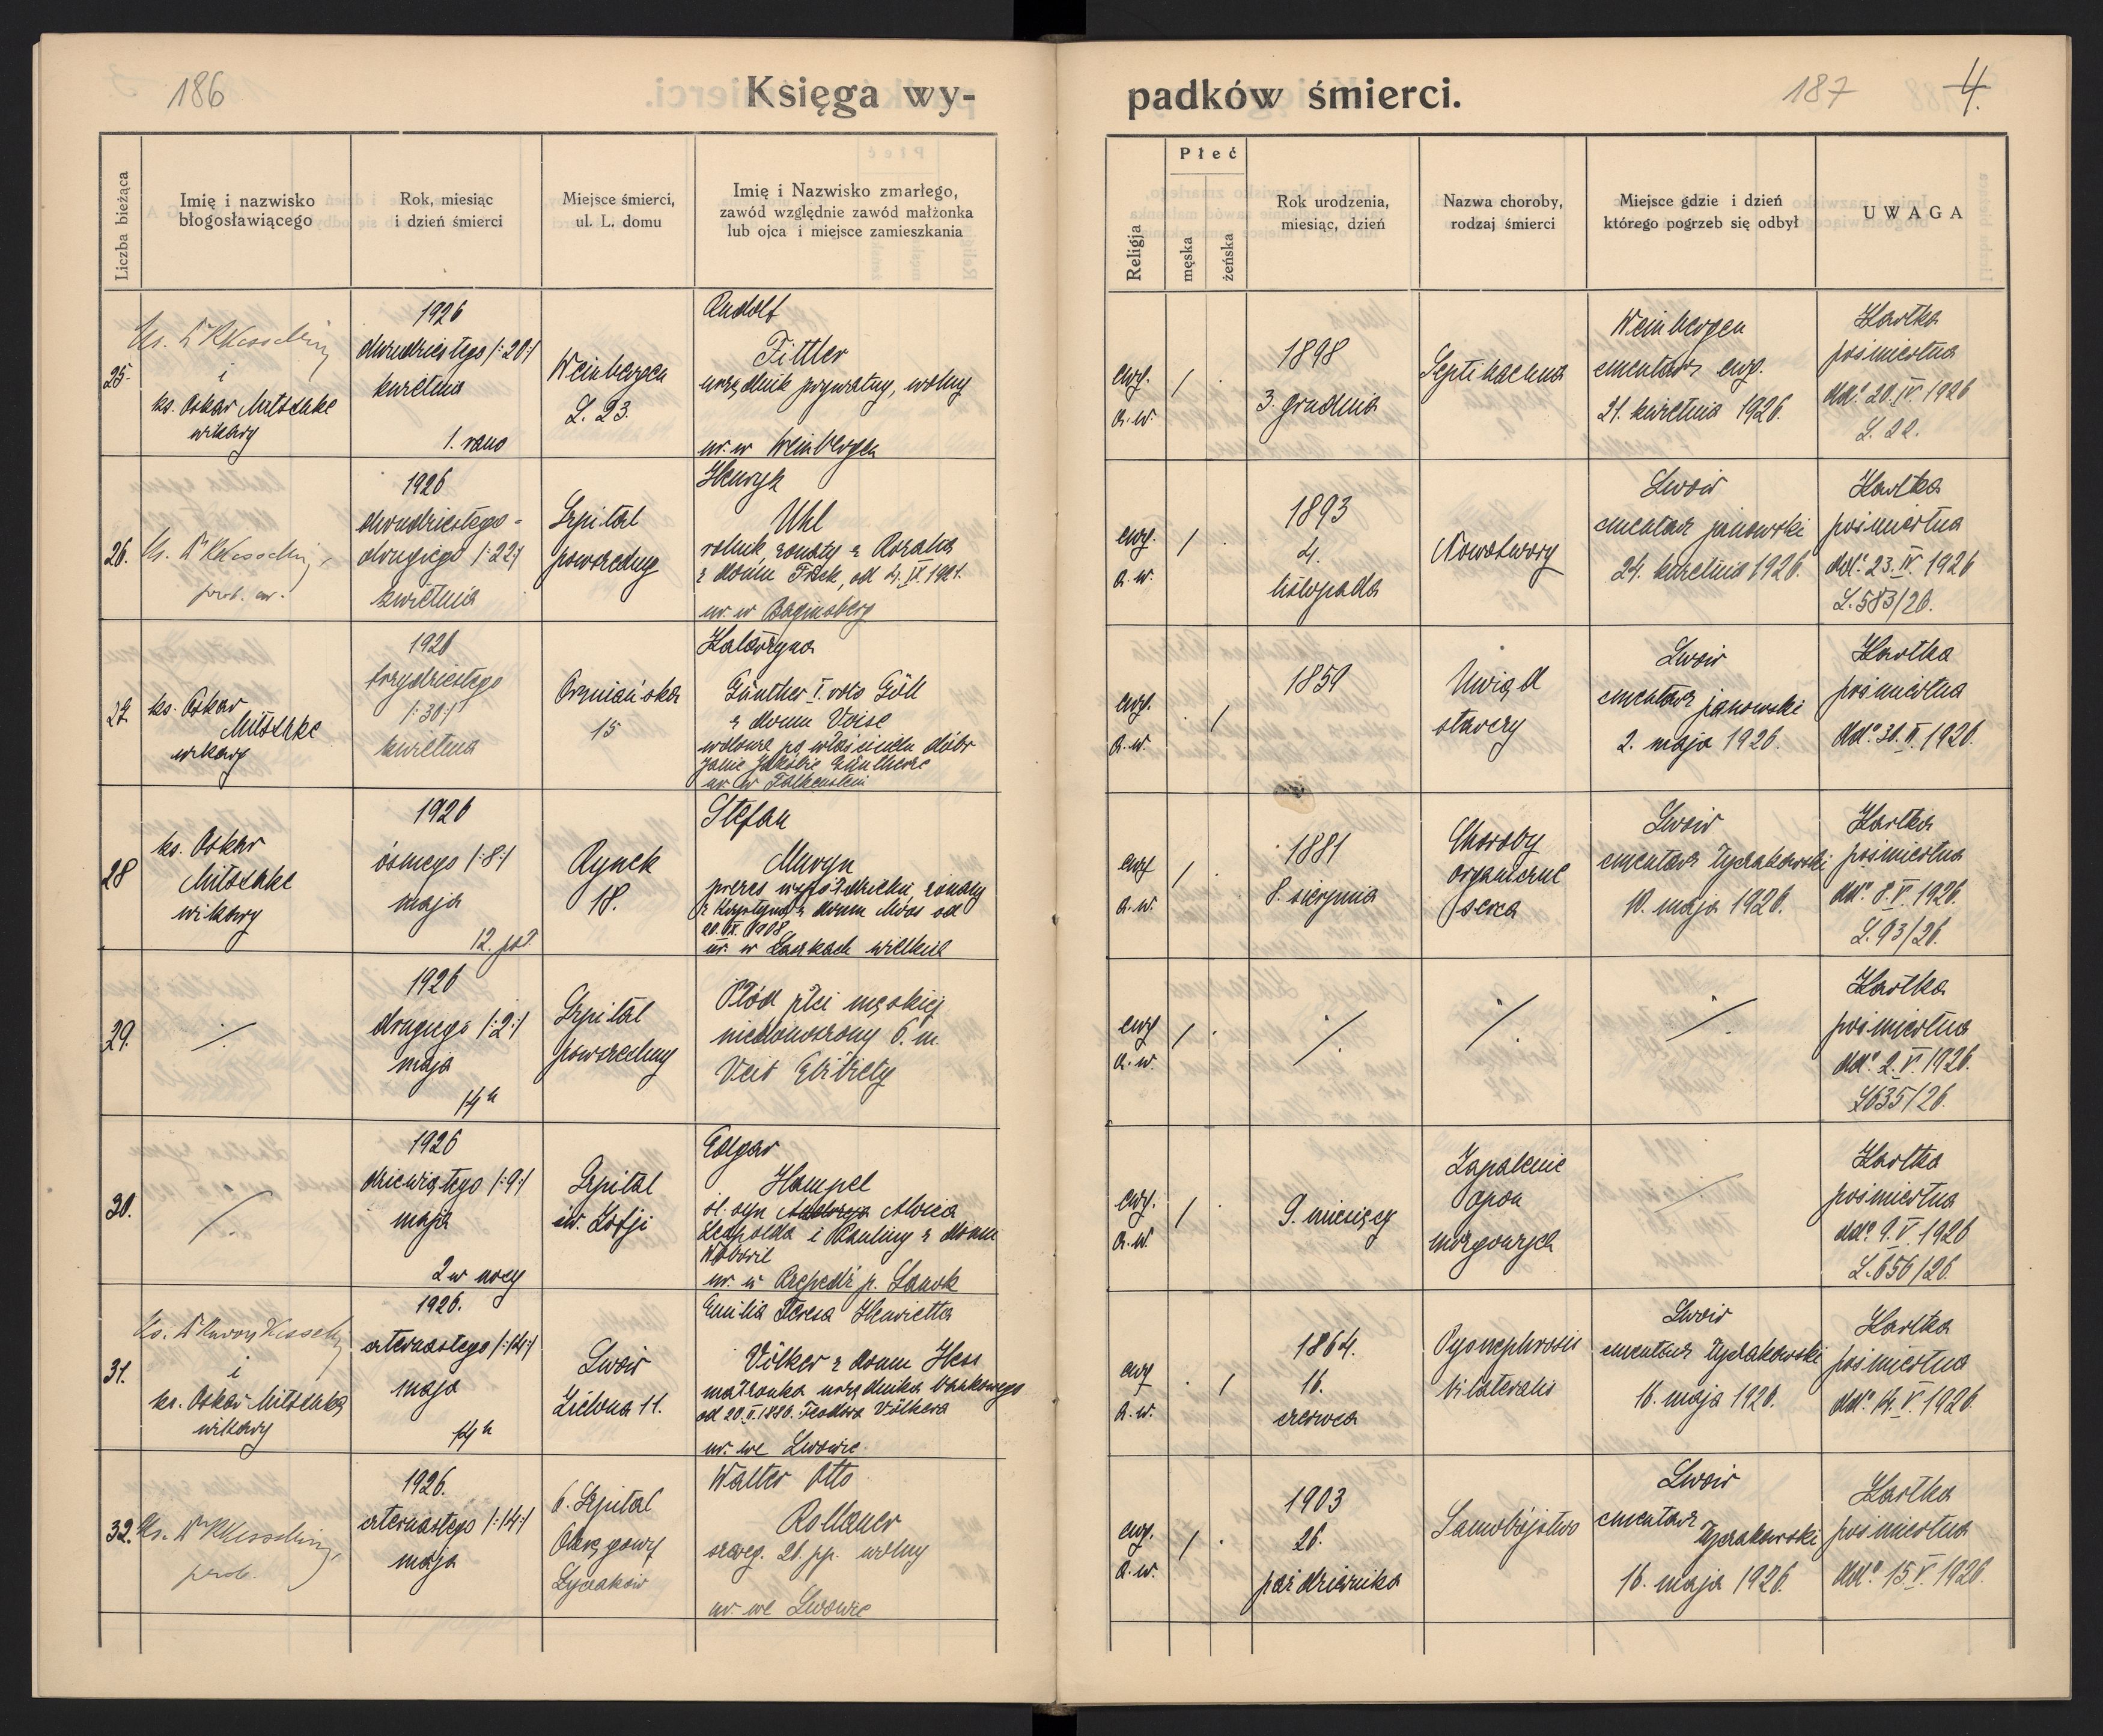 186
Księga wy-
padków śmierci.
187
4.
Liczba bieżąca
Imię i nazwisko
błogosławiącego
Rok, miesiąc
i dzień śmierci
Miejsce śmierci,
ul. L. domu
Imię i Nazwisko zmarłego,
zawód względnie zawód małżonka
lub ojca i miejsce zamieszkania
Religja
Płeć
męska
żeńska
Rok urodzenia,
miesiąc, dzień
Nazwa choroby,
rodzaj śmierci
Miejsce gdzie i dzień
którego pogrzeb się odbył
UWAGA
25.
Ks. Dr Kesselring
i
ks. Oskar Mitschke
wikary
1926
dwudziestego /:20:/
kwietnia
1. rano
Weinbergen
L. 23.
Rudolf
Fittler
urzędnik prywatny, wolny
ur. w Weinbergen
ewg.
a. w.
/ .
1898
3. grudnia
Septichaemia
Weinbergen
cmentarz ewg.
21. kwietnia 1926.
Kartka
pośmiertna
ddo. 20. IV. 1926
L. 22.
26.
Ks. Dr Kesselring
prob. ew.
1926
dwudziestego-
drugiego /:22:/
kwietnia
Szpital
powszechny
Henryk
Uhl
rolnik, żonaty z Rozalią
ur. w Baginsberg
ewg.
a. w.
/ .
1893
4.
listopada
Nowotwory
Lwów
cmentarz janowski
24. kwietnia 1926.
Kartka
pośmiertna
ddo. 23. IV. 1926
L. 583/26.
27.
ks. Oskar
Mitschke
wikary
1926
trzydziestego
/:30:/
kwietnia
Ormiańska
15
Katarzyna
Günther I. voto Göll
z domu Voise
wdowa po właścicielu dóbr
Janie Jakóbie Güntherze
ur. w Falkenstein
ewg.
a. w.
. /
1859
Uwiąd
starczy
Lwów
cmentarz janowski
2. maja 1926.
Kartka
pośmiertna
ddo. 30. IV. 1926.
28
ks. Oskar
Mitschke
wikary
1926
ósmego /:8:/
maja
12. poł.
Rynek
18.
Stefan
Muryn
żonaty
z domu Moos od
20. IX. 1908
ur. w Laszkach wielkich
ewg
a. w.
/ .
1881
8. sierpnia
Choroby
organiczne
serca
Lwów
cmentarz Łyczakowski
10. maja 1926.
Kartka
pośmiertna
ddo. 8. V. 1926.
L. 93/26.
29.
./.
1926
drugiego /:2:/
maja
14h
Szpital
powszechny
Płód płci męskiej
niedonoszony 6. m.
Veit Elżbiety
ewg
a. w.
/ .
./.
./.
./.
Kartka
pośmiertna
ddo. 2. V. 1926.
L 635/26.
30.
./.
1926
dziewiątego /:9:/
maja
2 w nocy
Szpital
św. Zofji
Edgar
Hampel
śl. syn Alojza
Leopolda i Pauliny z domu
ur. w Rzepedź p. Sanok
ewg.
a. w.
/ .
9. miesięcy
Zapalenie
opon
mózgowych
./.
Kartka
pośmiertna
ddo. 9. V. 1926
L. 656/26.
31.
i
ks. Oskar Mitschke
wikary
1926.
czternastego /:14:/
maja
14h
Lwów
Zielona 11.
Emilia Teresa Henrietta
Völker z domu Hess
małżonka urzędnika bankowego
od 20. V. 1886. Teodora Völkera
ur. we Lwowie.
ewg
a. w.
. /
1864.
16.
czerwca
Pyonephrosis
bilateralis
Lwów
cmentarz Łyczakowski
16. maja 1926.
Kartka
pośmiertna
ddo. 14. V. 1926.
32.
Ks. Dr Kesselring
prob.
1926.
czternastego /:14:/
maja
6. Szpital
Okręgowy
Łyczaków
Walter Otto
Rollauer
szereg. 26. pp. wolny
ur. we Lwowie
ewg.
a. w.
/ .
1903
26.
października
Samobójstwo
Lwów
cmentarz
Łyczakowski
16. maja 1926.
Kartka
pośmiertna
ddo. 15. V. 1926.